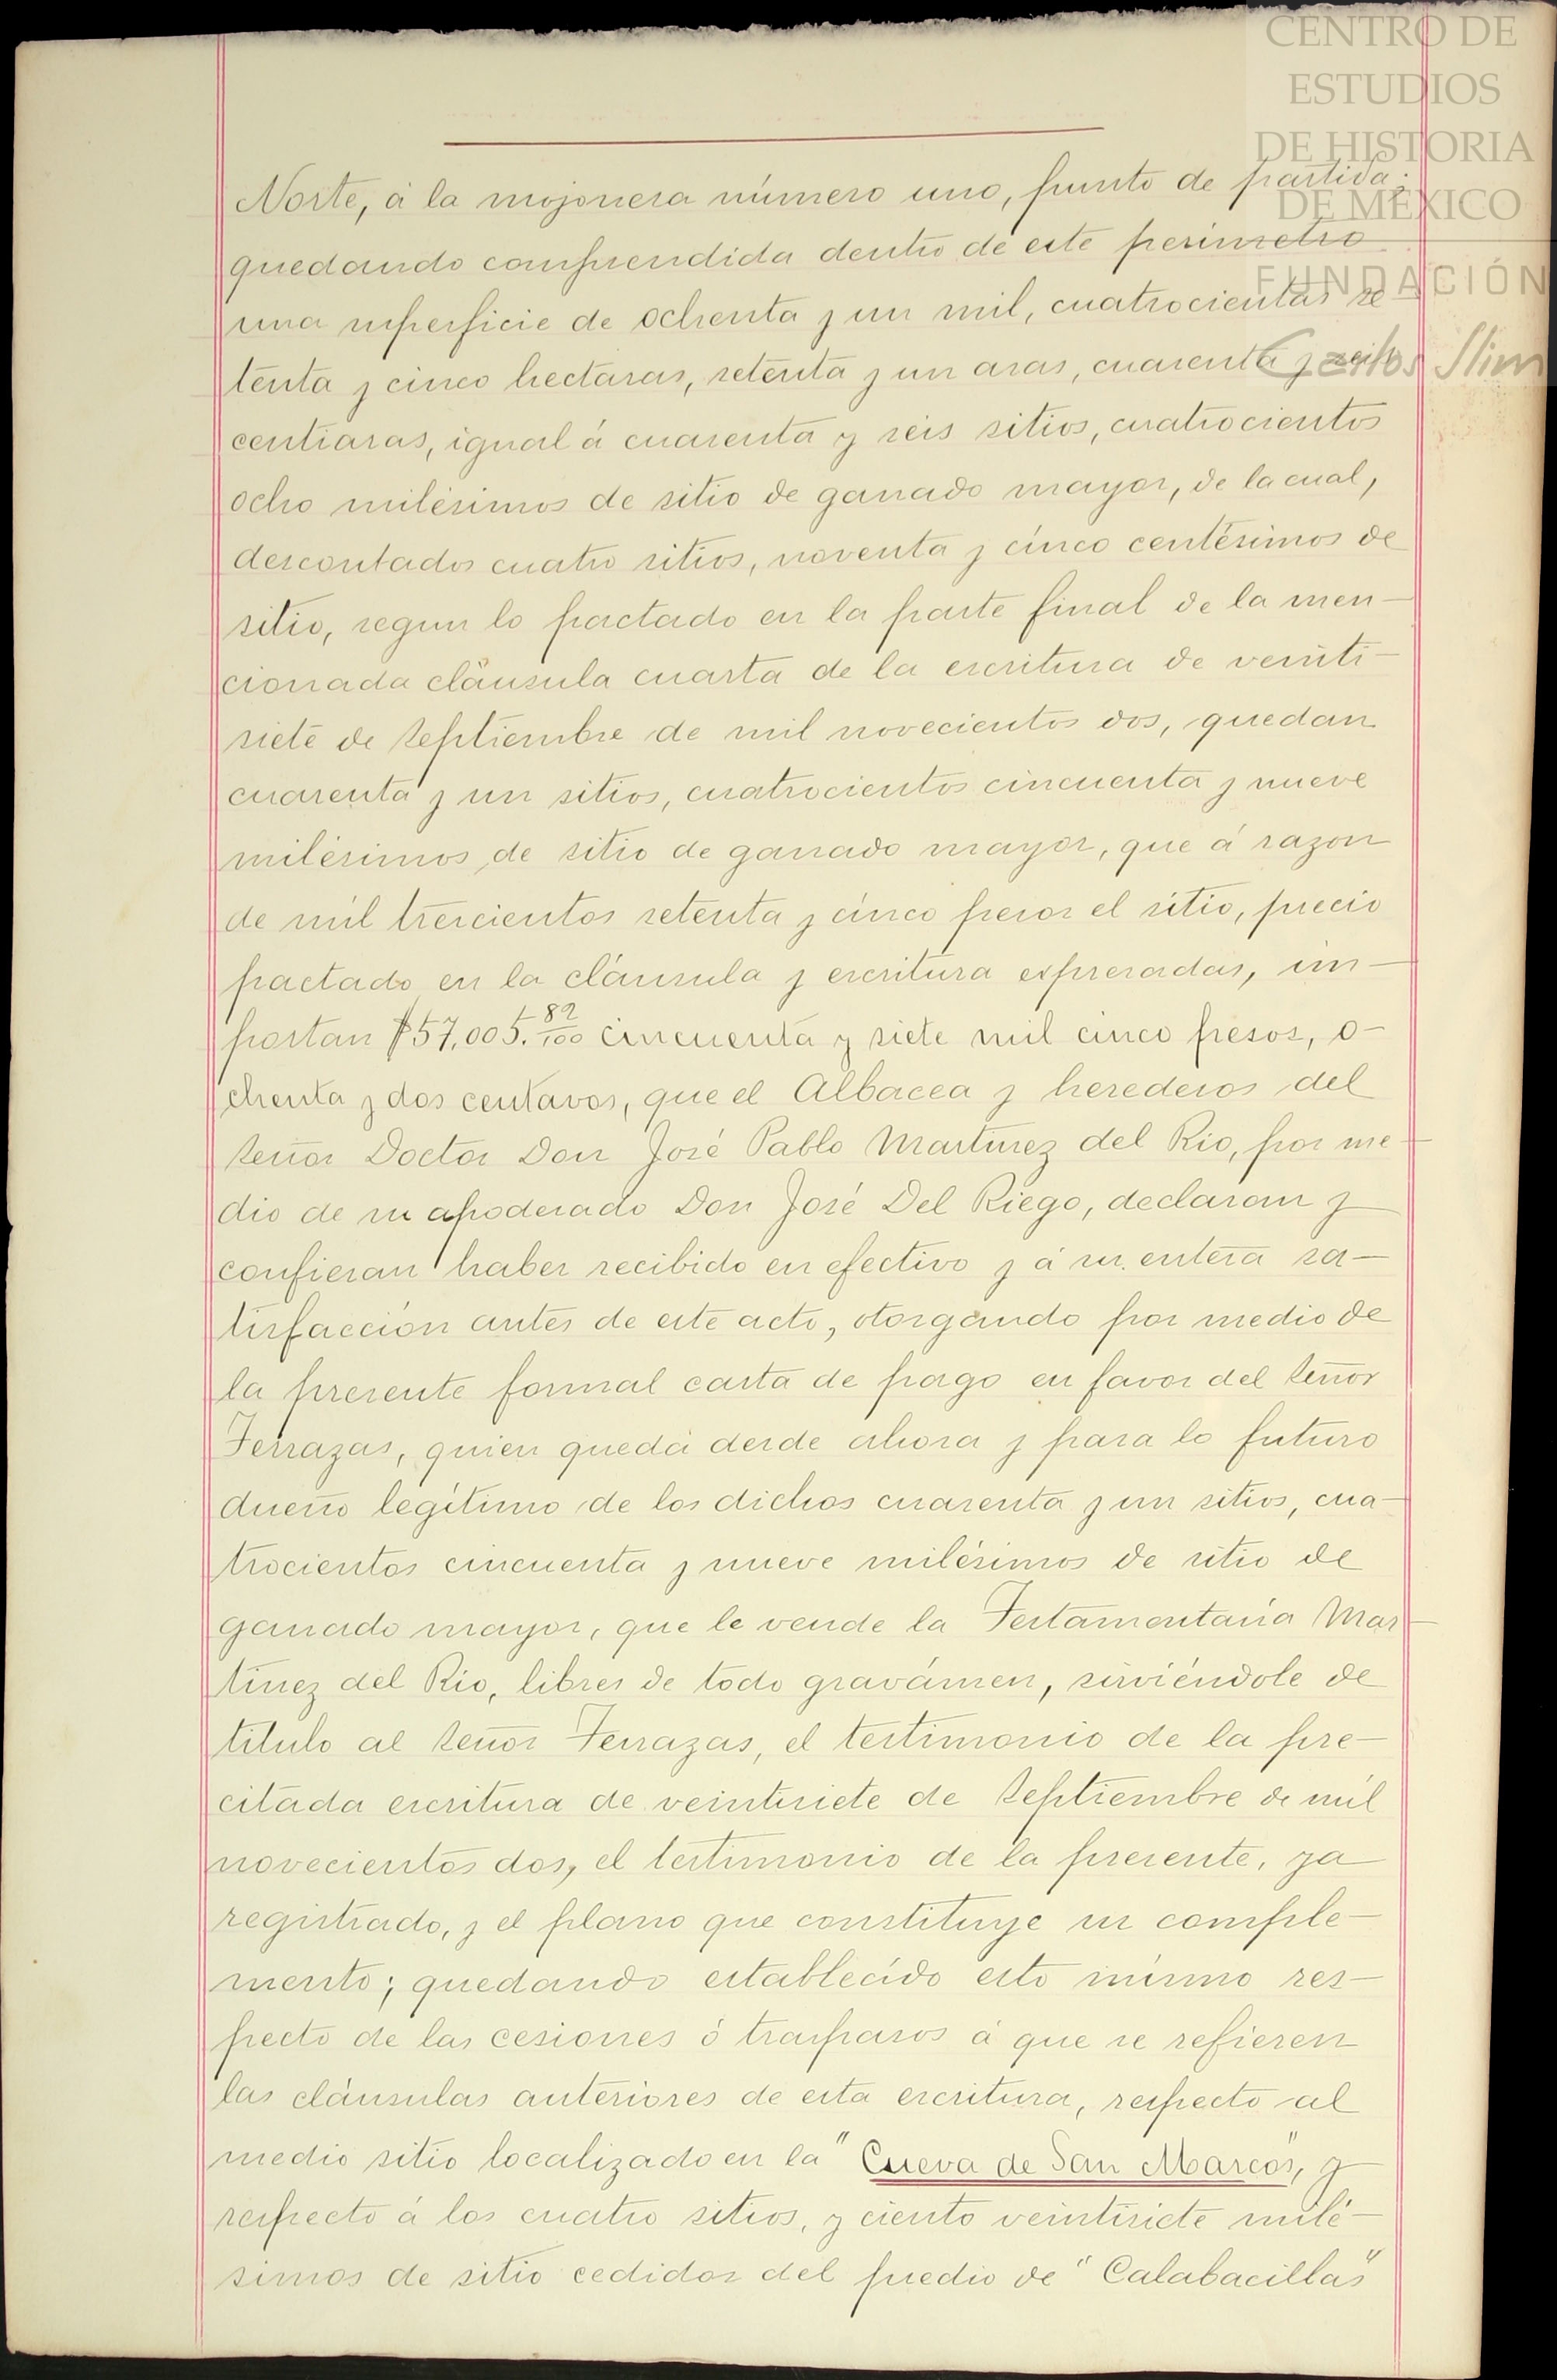 CENTRO DE
ESTUDIOS
DE HISTORIA
DE MÉXICO
FUNDACIÓN
Carlos Slim
Norte, á la mojonera número uno, punto de partida;
quedando comprendida dentro de este perímetro
una superficie de ochenta y un mil, cuatrocientas se
tenta y cinco hectaras, setenta y un aras, cuarenta y seis
centiaras, igual á cuarenta y seis sitios, cuatrocientos
ocho milésimos de sitio de ganado mayor, de la cual,
descontados cuatro sitios, noventa y cinco centésimos de
sitio, segun lo pactado en la parte final de la men-
cionada cláusula cuarta de la escritura de veinti-
siete de Septiembre de mil novecientos dos, quedan
cuarenta y un sitios, cuatrocientos cincuenta y nueve
milésimos de sitio de ganado mayor, que á razon
de mil trescientos setenta y cinco pesos el sitio, precio
pactado en la cláusula y escritura expresadas, im-
portan $57,005.82/100 cincuenta y siete mil cinco pesos, o-
chenta y dos centavos, que el Albacea y herederos del
Señor Doctor Don José Pablo Martinez del Rio, por me-
dio de su apoderado Don José Del Riego, declaran y
confiesan haber recibido en efectivo y á su entera sa-
tisfacción antes de este acto, otorgando por medio de
la presente formal carta de pago en favor del Señor
Terrazas, quien queda desde ahora y para lo futuro
dueño legítimo de los dichos cuarenta y un sitios, cua-
trocientos cincuenta y nueve milésimos de sitio de
ganado mayor, que le vende la Testamentaría Mar-
tinez del Rio, libres de todo gravámen, sirviéndole de
título al Señor Terrazas, el testimonio de la pre-
citada escritura de veintisiete de Septiembre de mil
novecientos dos, el testimonio de la presente, ya
registrado, y el plano que constituye su comple-
mento; quedando establecido esto mismo res-
pecto de las cesiones ó traspasos á que se refieren
las cláusulas anteriores de esta escritura, respecto al
medio sitio localizado en la "Cueva de San Marcos", y
respecto á los cuatro sitios, y ciento veintisiete milé-
simos de sitio cedidos del predio de "Calabacillas"